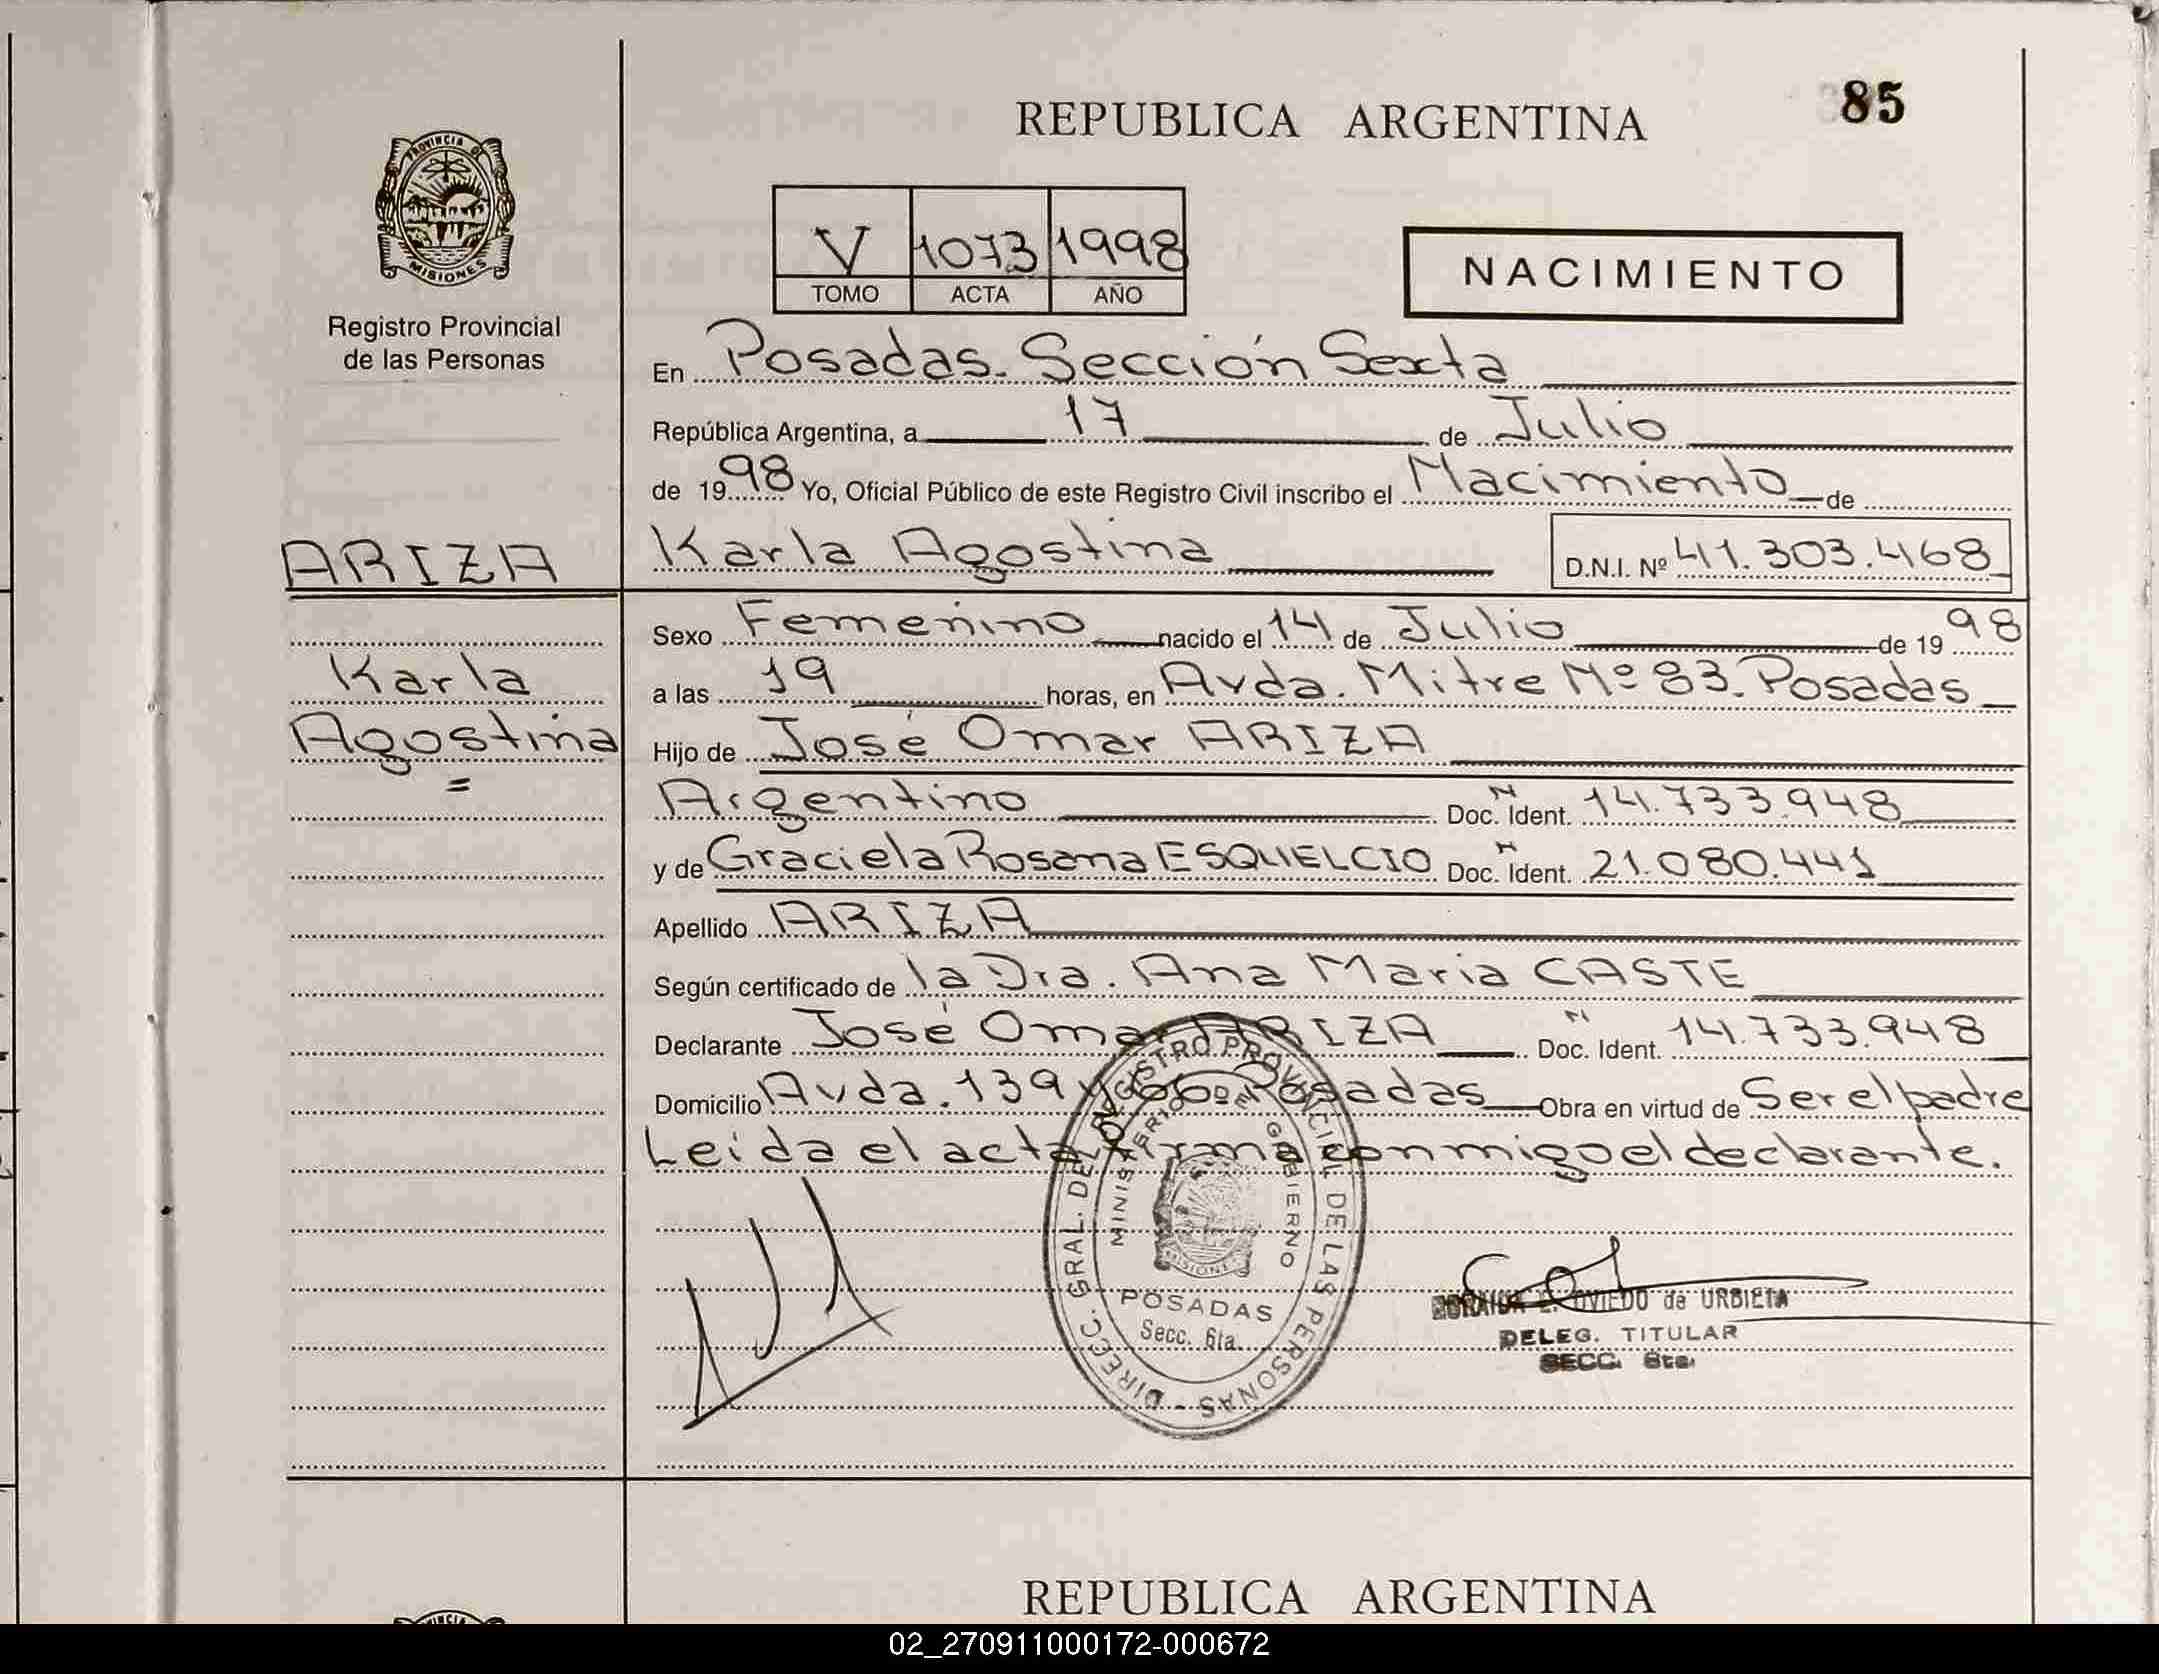 85
REPUBLICA ARGENTINA
PROVINCIA DE
MISIONES
Registro Provincial
de las Personas
V 1073 1998
TOMO ACTA AÑO
NACIMIENTO
En Posadas. Sección Sexta
República Argentina, a 17 de Julio
de 1998 Yo, Oficial Público de este Registro Civil inscribo el Nacimiento de
ARIZA
Karla Agostina D.N.I. Nº 41.303.468
Sexo Femenino nacido el 14 de Julio de 1998
Karla
Agostina
=
a las 19 horas, en Avda. Mitre Nº 83. Posadas
Hijo de José Omar ARIZA
Argentino Doc. N Ident. 14.733.948
y de Graciela Rosana ESQUELCIO Doc. N Ident. 21.080.441
Apellido ARIZA
Según certificado de la Dra. Ana Maria CASTE
Declarante José Omar ARIZA Doc. N Ident. 14.733.948
Domicilio Avda. 139 Posadas Obra en virtud de Ser el padre
Leida el acta firma conmigo el declarante.
DIRECC. GRAL. DEL REGISTRO PROVINCIAL DE LAS PERSONAS -
MINISTERIO DE GOBIERNO
MISIONES
POSADAS
Secc. 6ta.
OVIEDO de URBIETA
DELEG. TITULAR
SECC. 6ta.
REPUBLICA ARGENTINA
02_270911000172-000672